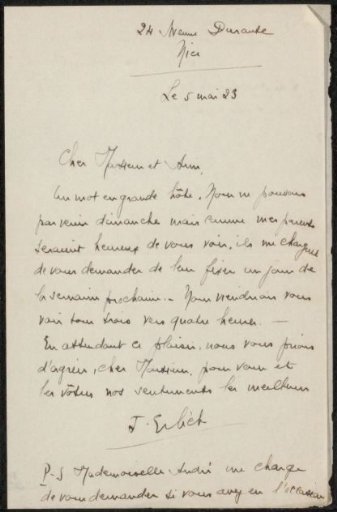 24 Avenue Durante
Nice
Le 5 mai 23
Cher Monsieur et Ami,
Un mot en grande hâte. Nous ne pouvons
pas venir dimanche mais comme mes parents
seraient heureux de vous voir, ils me chargent
de vous demander de leur fixer un jour de
la semaine prochaine. - Nous viendrions vous
voir tous trois vers quatre heures. -
En attendant ce plaisir, nous vous prions
d'agréer, cher Monsieur, pour vous et
les vôtres nos sentiments les meilleurs
J. Erlich
P-S Mademoiselle André me charge
de vous demander si vous avez eu l'occasion